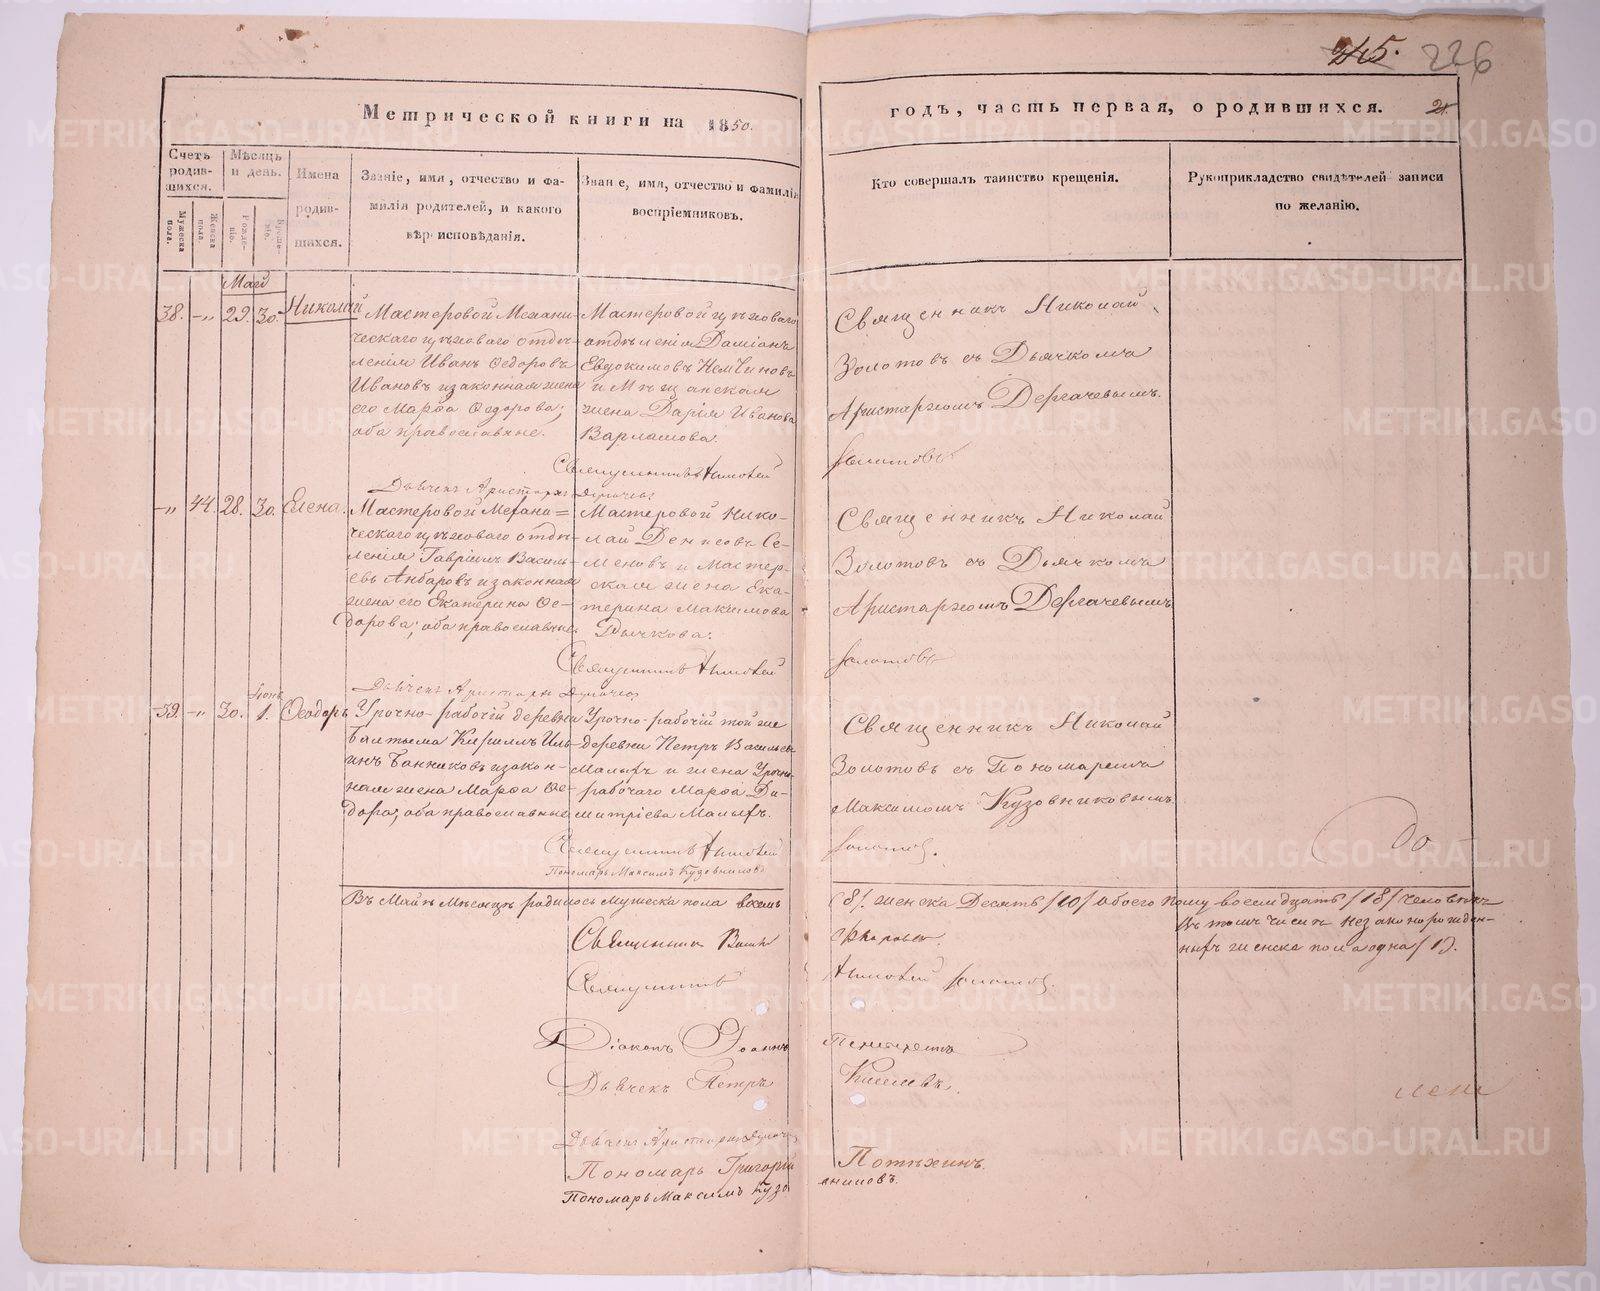 245. 226
Метрической книги на 1850.
годъ, часть первая, о родившихся.
Счетъ родив-шихся.
Мѣсяцъ и день.
Мужеска пола.
Женска пола.
Рожде-нію.
Креще-нію.
Имена
родив-
шихся.
Званіе, имя, отчество и фа-
милія родителей, и какого
вѣроисповѣданія.
Званіе, имя, отчество и фамилія
воспріемниковъ.
Кто совершалъ таинство крещенія.
Рукоприкладство свидѣтелей записи
по желанію.
Май
38. -„ 29. 30. Николай
Мастеровой Механи-
ческаго цѣховаго отдѣ-
ленія Иванъ Ѳедоровъ
Ивановъ и законная жена
его Марѳа Ѳедорова;
оба православные.
Мастеровой цѣховаго
отдѣленія Даміанъ
Евдокимовъ Немчиновъ
и Мѣщанская
жена Дарія Иванова
Варламова.
Священникъ Николай
Золотовъ съ Дьячкомъ
Аристархомъ Дергачевымъ.
Золотовъ
Священникъ Николай
Дьячекъ Аристархъ Дергачевъ
-„ 44. 28. 30. Елена.
Мастеровой Механи=
ческаго цѣховаго отдѣ-
ленія Гавріилъ Василь-
евъ Анбаровъ и законная
жена его Екатерина Ѳе-
дорова; оба православные.
Мастеровой Нико-
лай Денисовъ Се-
меновъ и Мастер-
ская жена Ека-
терина Максимова
Дьячкова.
Священникъ Николай
Золотовъ съ Дьячкомъ
Аристархомъ Дергачевымъ
Золотовъ
Священникъ Николай
Дьячекъ Аристархъ Дергачевъ
39. -„ 30. Іюнь 1. Ѳеодоръ
Урочно-рабочій деревни
Балтыма Кириллъ Иль-
инъ Банниковъ и закон-
ная жена Марѳа Ѳе-
дора; оба православные
Урочно-рабочій той же
деревни Петръ Васильевъ
Малыхъ и жена Урочно-
рабочаго Марѳа Ди-
митріева Малыхъ.
Священникъ Николай
Золотовъ съ Пономаремъ
Максимомъ Кузовниковымъ
Золотовъ.
Священникъ Николай
Пономарь Максимъ Кузовниковъ
До
Въ Маѣ Мѣсяцѣ родилось мужеска пола восемь
/8/. женска Десять /10/ обоего полу восемдцать /18/ человѣкъ
Въ томъ числѣ незаконорожден-
ныхъ женска пола одна /1/.
Священникъ
Священникъ Николай Золотовъ.
Діаконъ Іоаннъ
Дьячекъ Петръ Киселевъ.
Дьячекъ Аристархъ Дергачевъ
Пономарь Григорій Потѣхинъ.
Пономарь Максимъ Кузовниковъ.
METRIKI.GASO-URAL.RU